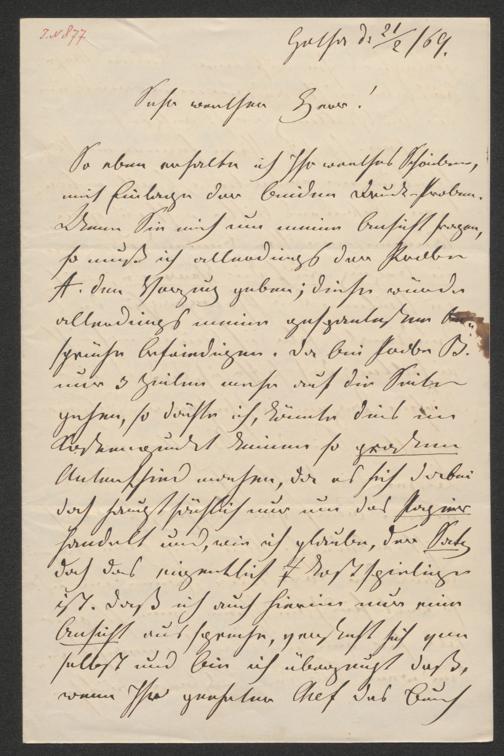 J.N 877
Gotha d: 21/2 /69.
Sehr werther Herr!
So eben erhalte ich Ihr werthes Schreiben,
mit Einlage der beiden Druck-Proben.
Wenn Sie mich um meine Ansicht fragen,
so muß ich allerdings der Probe
A. den Vorzug geben; diese würde
allerdings meine An-
sprüche befriedigen. Da bei Probe B.
nur 3 Zeilen mehr auf die Seite
gehen, so dächte ich, könnte dies im
Kostenpunkt keinen so großen
Unterschied machen, da es sich dabei
doch hauptsächlich nur um das Papier
handelt und, wie ich glaube, der Satz
doch das eigentlich Kostspielige
ist. Daß ich auch hierin nur eine
Ansicht ausspreche, versteht sich von
selbst und bin ich überzeugt daß,
wenn Ihr geehrter Chef das Buch